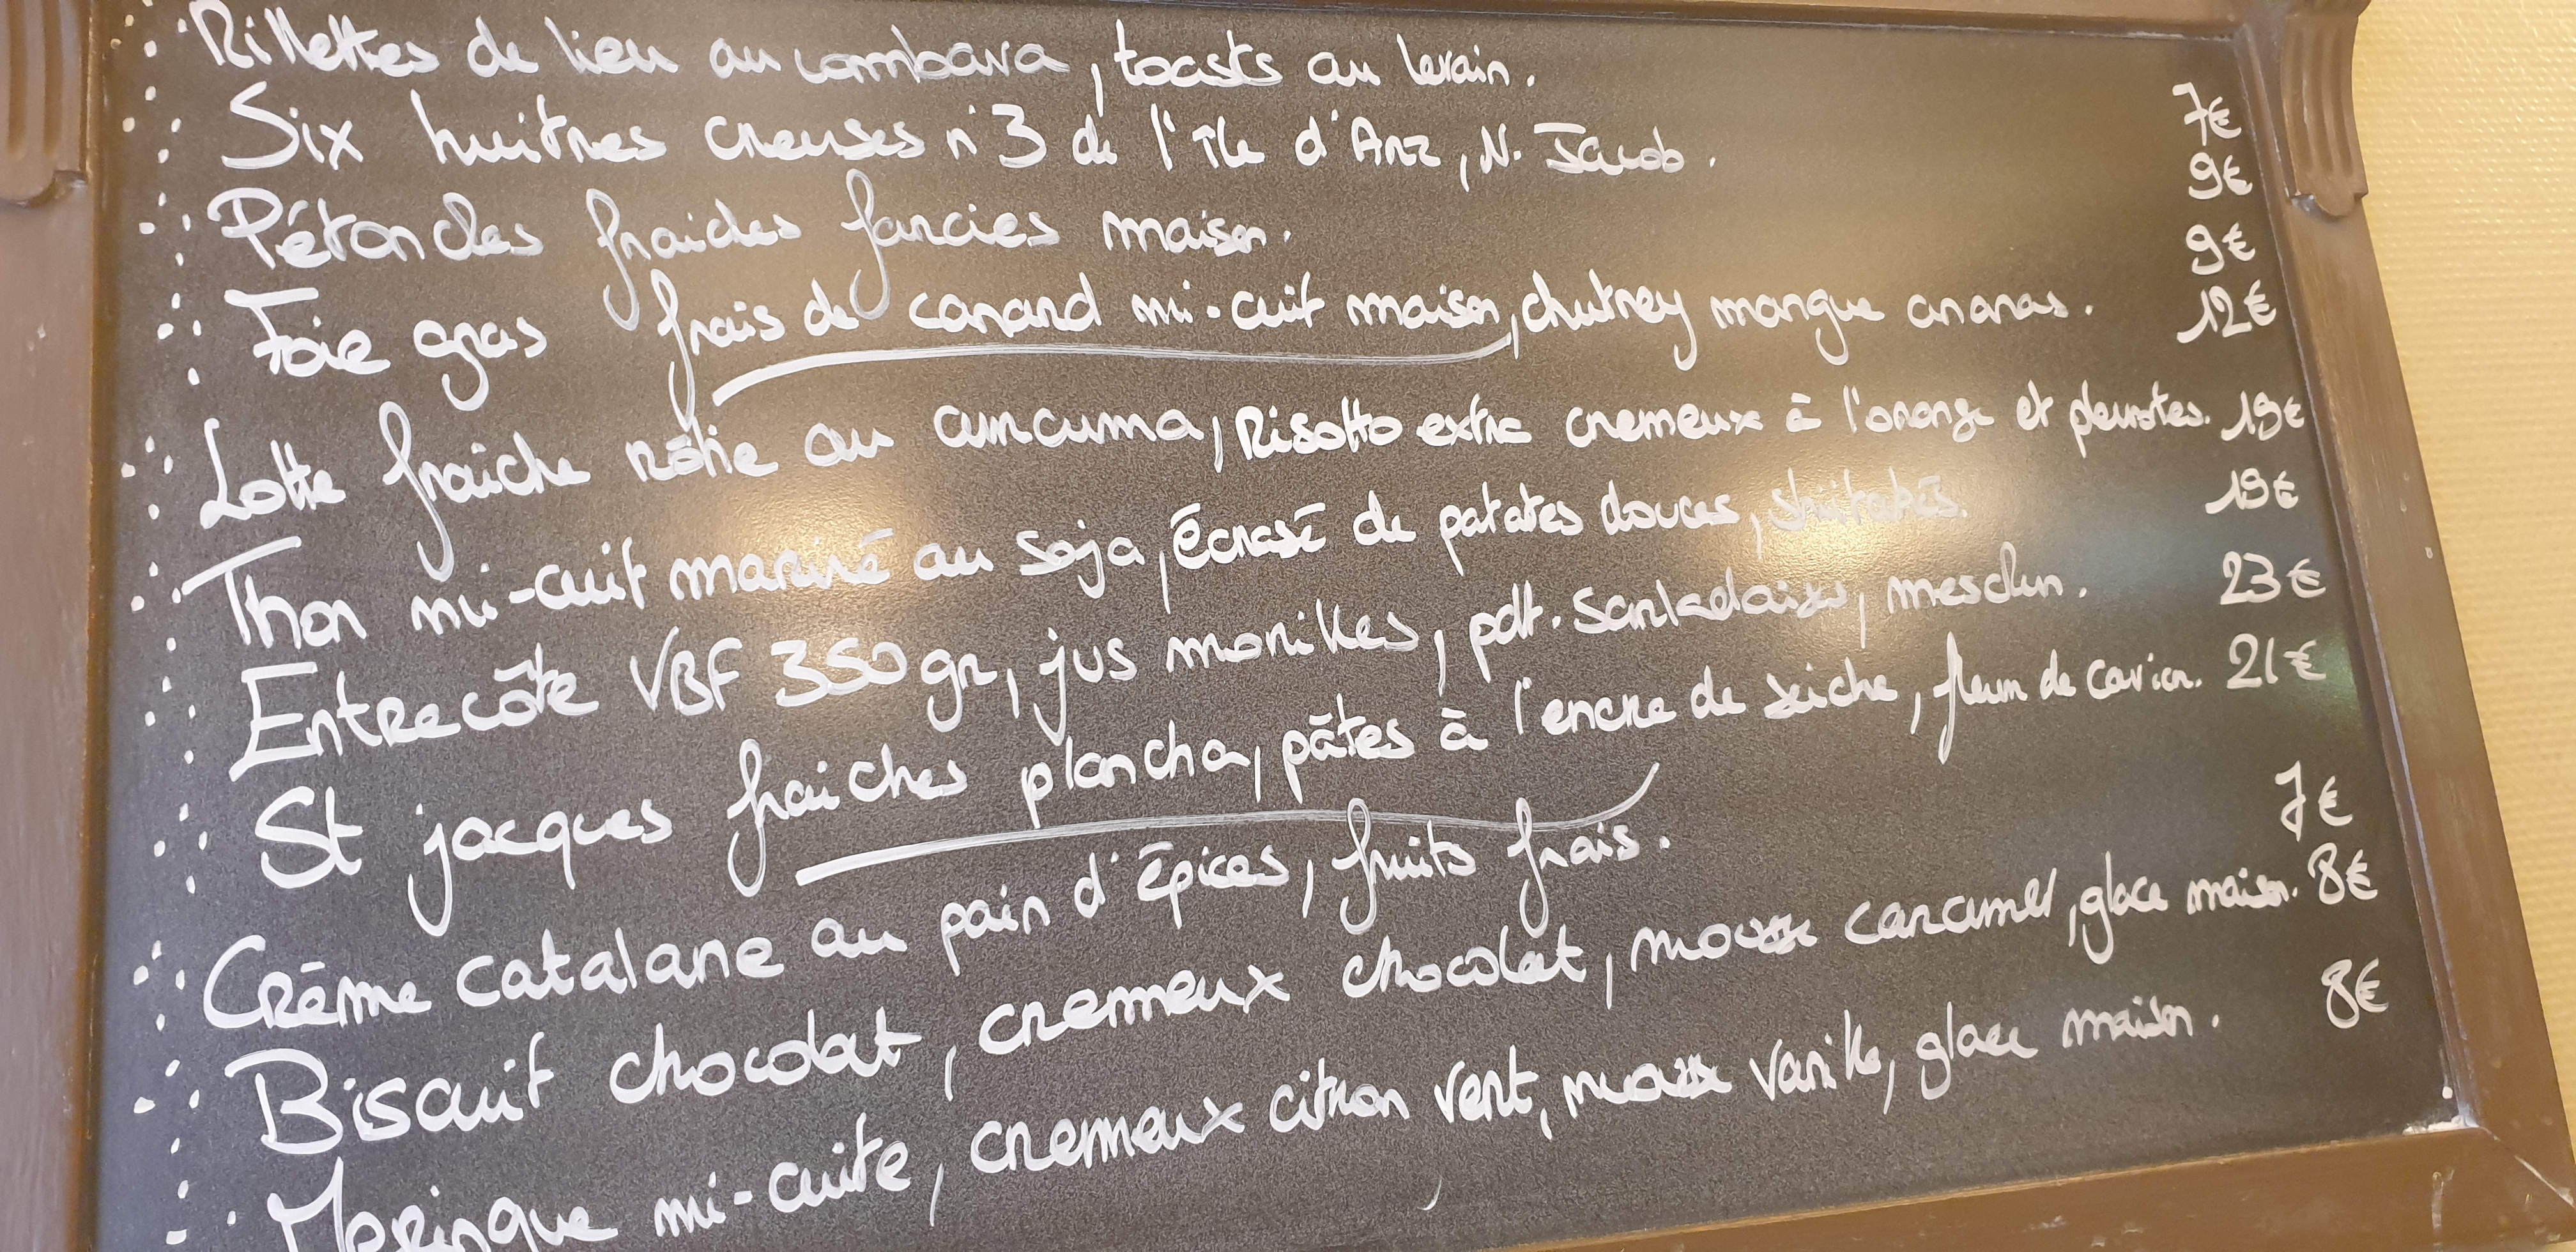 Rillettes de lieu au combava, toasts au levain. 7€
Six huitres creuses n°3 de l'île d'Arz, N. Jacob. 9€
Pétoncles fraiches farcies maison. 9€
Foie gras frais de canard mi-cuit maison, chutney mangue ananas. 12€
Lotte fraîche rôtie au curcuma, Risotto extra cremeux à l'orange et pleurotes. 19€
Thon mi-cuit mariné au soja, écrasé de patates douces, shiitakés. 19€
Entrecôte VBF 350 gr, jus morilles, pdt. Sarladaises, mesclun. 23€
St jacques fraiches plancha, pâtes à l'encre de seiche, fleur de caviar. 21€
Crème catalane au pain d'épices, fruits frais. 7€
Biscuit chocolat, cremeux chocolat, mousse caramel, glace maison. 8€
Meringue mi-cuite, cremeux citron vert, mousse vanille, glace maison. 8€